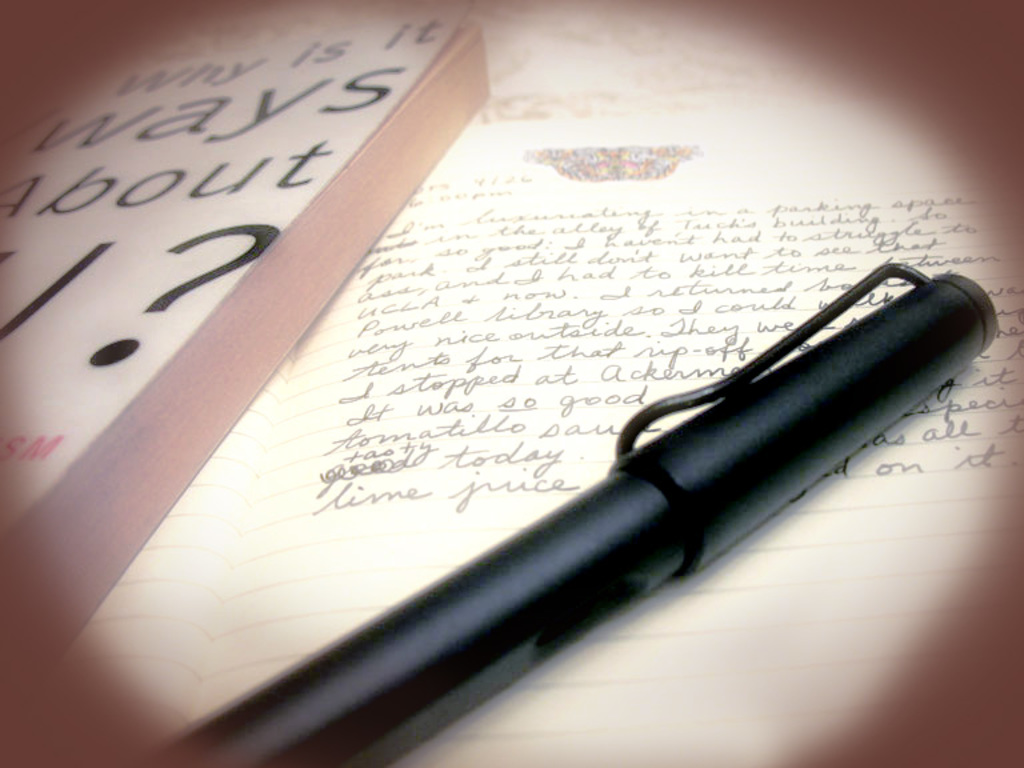 Why is it
ways
About
/?
SM
4/26
00pm
I'm luxuriating in a parking space
in the alley of Tuch's building. So
far, so good: I haven't had to struggle to
park. I still don't want to see that
ass, and I had to kill time between
UCLA & now. I returned
Powell library so I could
very nice outside. They we
tents for that rip-off
I stopped at Ackerma
It was so good
tomatillo sau
tasty
good today.
lime juice
it
speci
as all t
d on it.